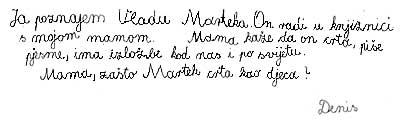 Ja poznajem Vladu Marteka. On radi u knjižnici
s mojom mamom. Mama kaže da on crta, piše
pjesme, ima izložbe kod nas i po svijetu.
Mama, zašto Martek crta kao djeca?
Denis